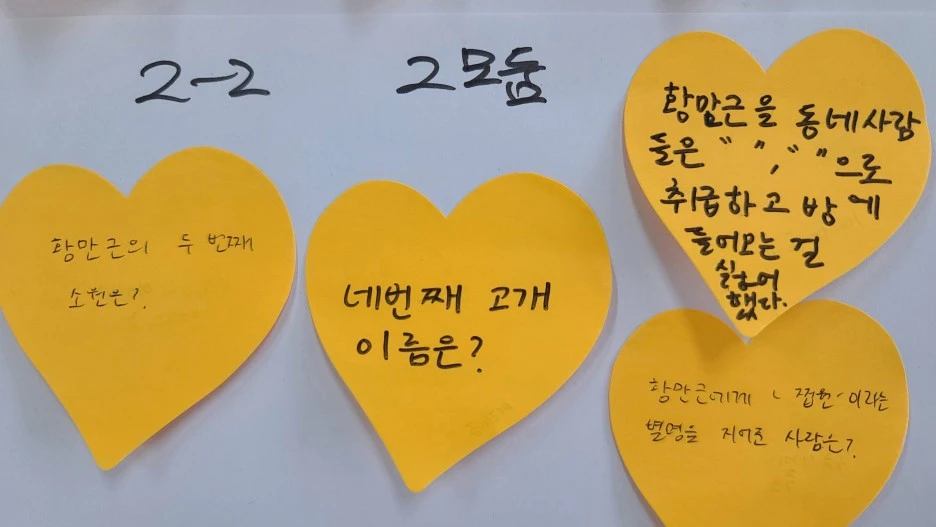 2-2
2모둠
황만근의 두 번째
소원은?
네번째 고개
이름은?
황만근을 동네사람
들은 " ", " "으로
취급하고 방에
들어오는 걸
싫어
했다.
황만근에게 이라는
별명을 지어준 사람은?